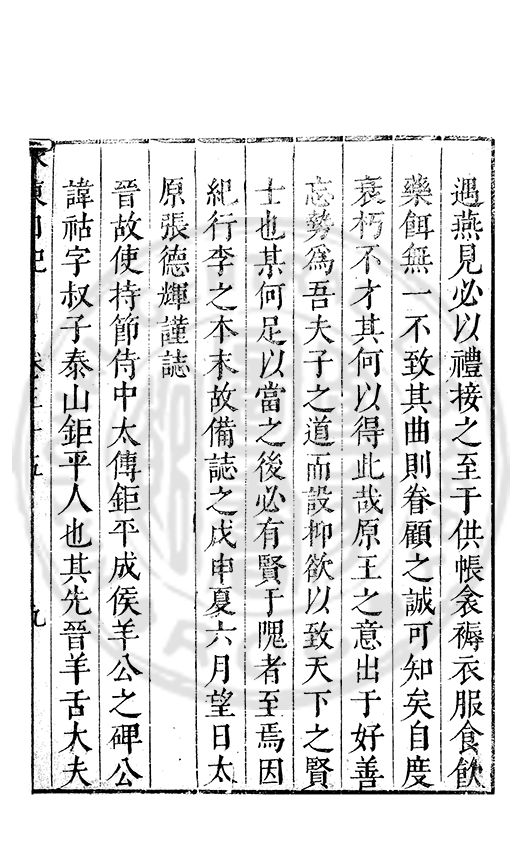 遇燕見必以禮接之至于供帳衾褥衣服食飲
藥餌無一不致其曲則眷顧之誠可知矣自度
衰朽不才其何以得此哉原王之意出于好善
忘勢為吾夫子之道而設抑欲以致天下之賢
士也某何足以當之後必有賢于隗者至焉因
紀行李之本末故備誌之戊申夏六月望日太
原張德輝謹誌
晉故使持節侍中太傅鉅平成侯羊公之碑公
諱祜字叔子泰山鉅平人也其先晉羊舌大夫
卷三十五 九